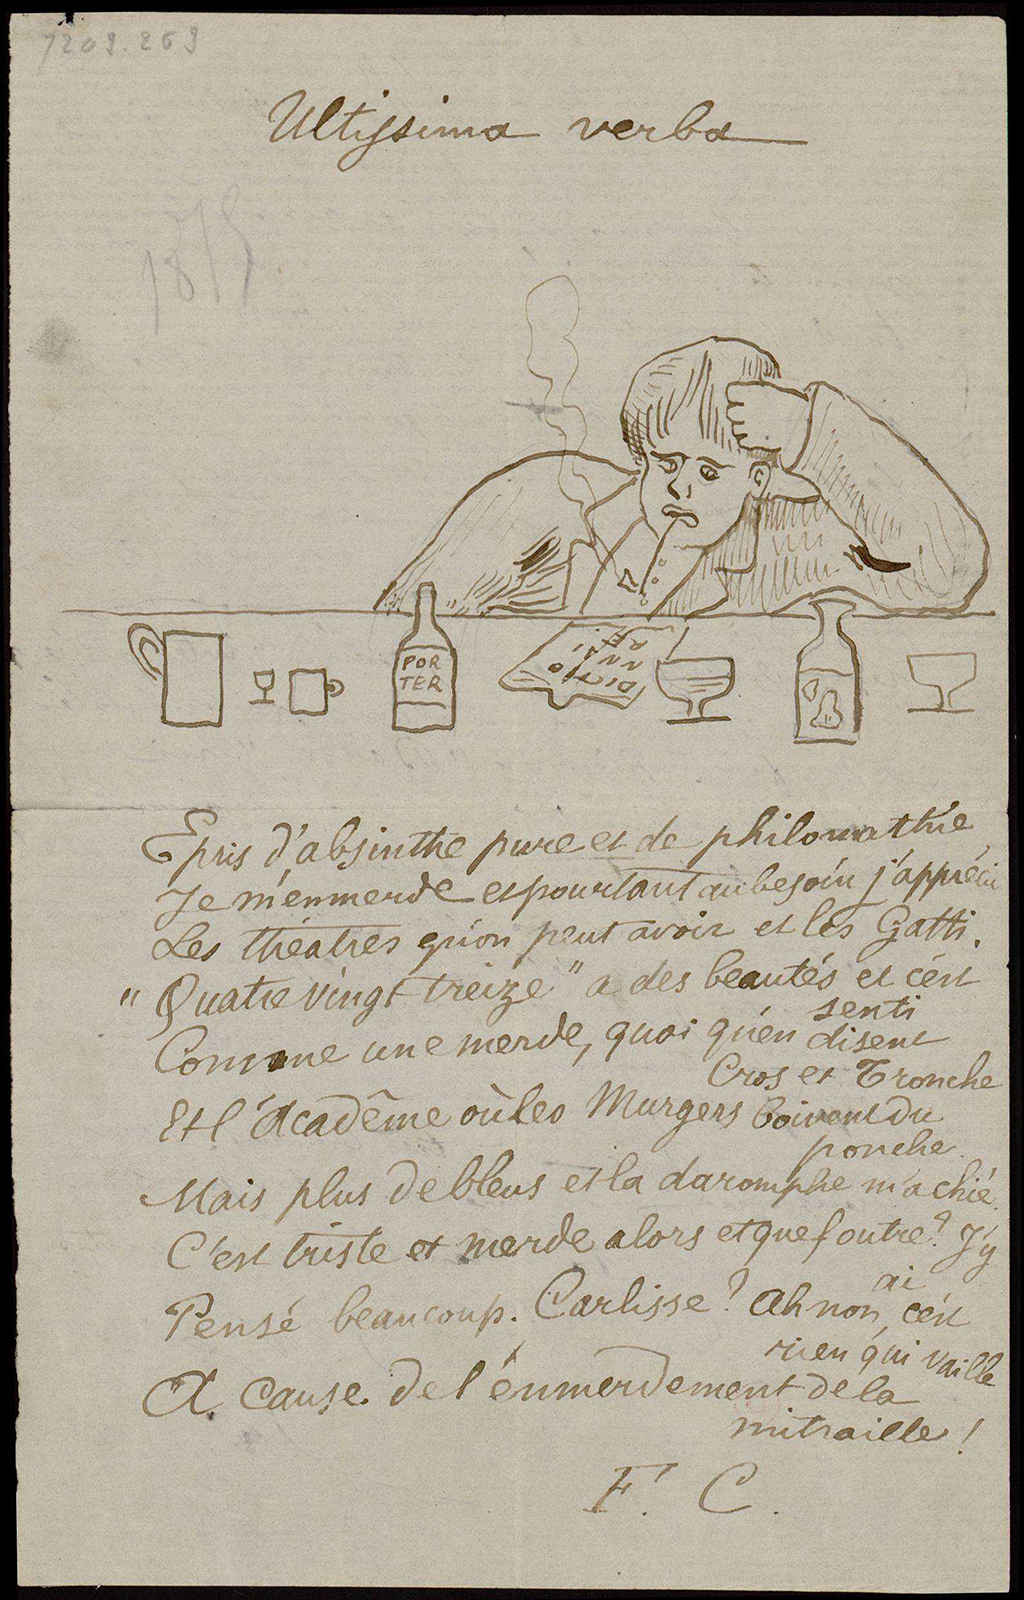 7203.263
Ultissima verba
1875
POR
TER
DICTIO
NNAI
RE
Epris d'absinthe pure et de philomathie
Je m'enmerde et pourtant au besoin j'apprécie
Les théatres qu'on peut avoir et les Gatti.
"Quatre vingt treize" a des beautés et c'est
senti
Comme une merde, quoi qu'en disent
Cros et Tronche
Et l'Acadême où les Murgers boivent du
ponche.
Mais plus de bleus et la daromphe m'a chié.
C'est triste et merde alors et que foutre? J'y
ai
Pensé beaucoup. Carlisse? Ah non, c'est
rien qui vaille
A cause de l'enmerdement de la
mitraille!
F. C.